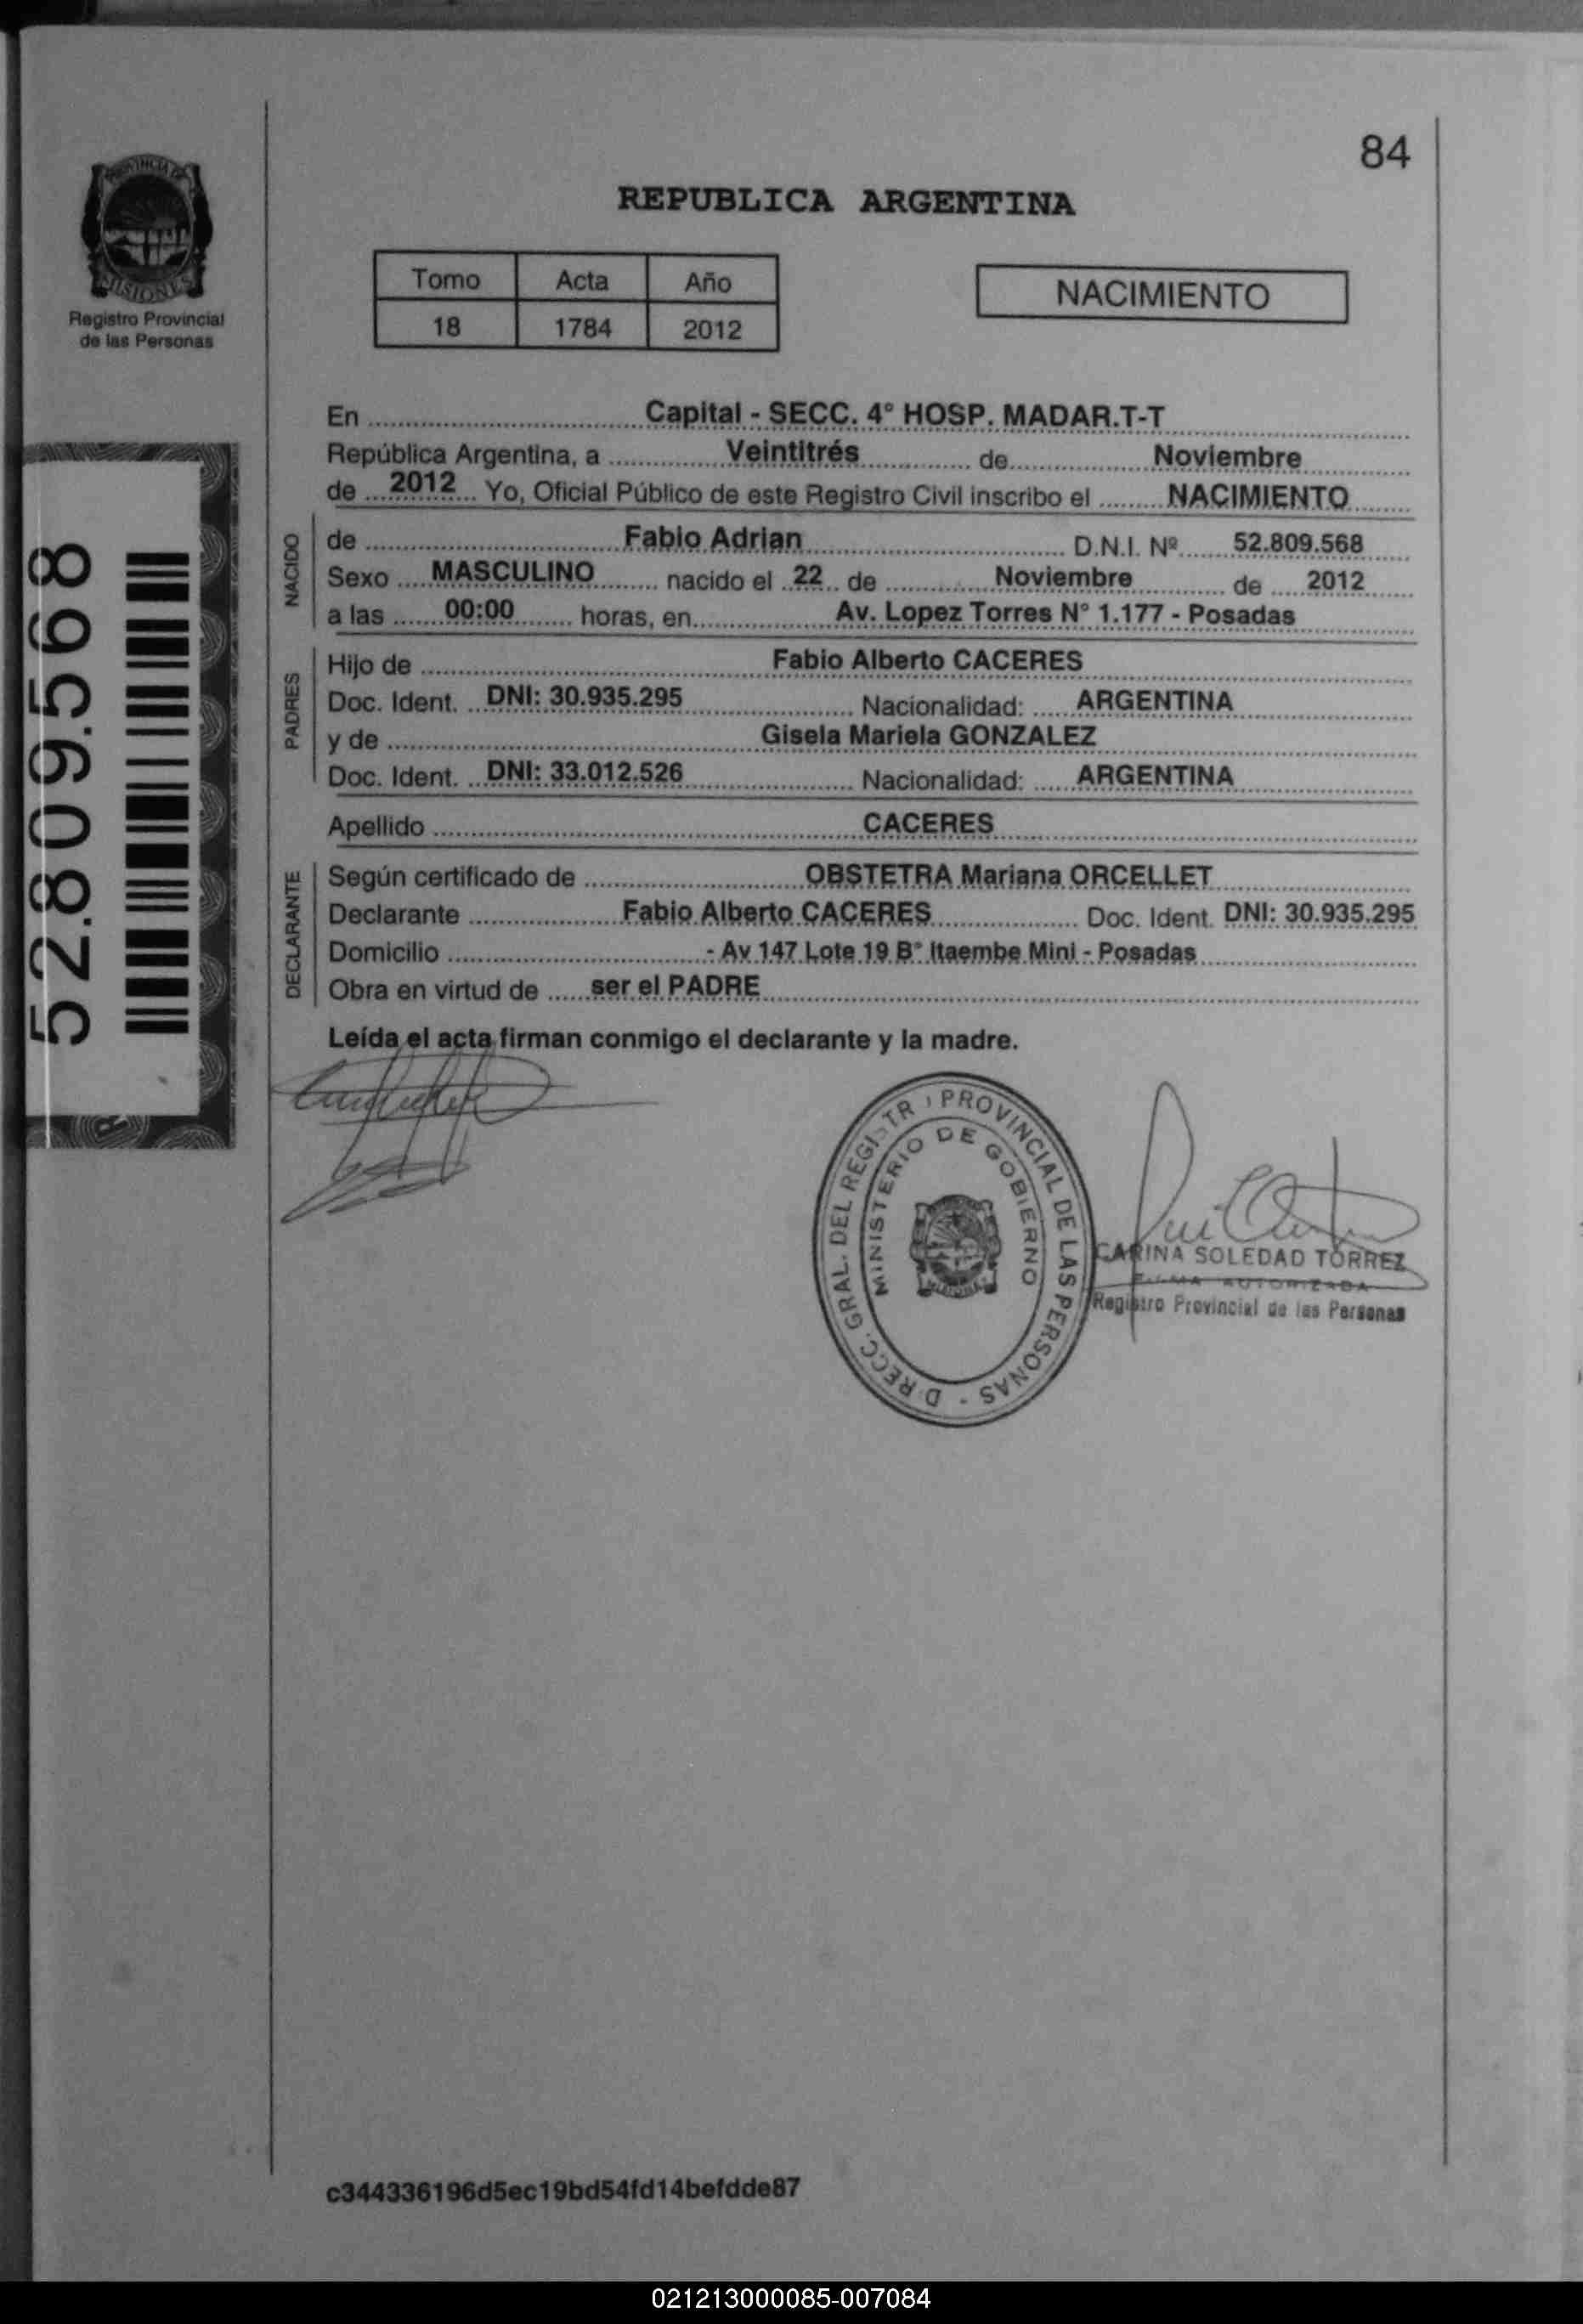 84
REPUBLICA ARGENTINA
PROVINCIA DE
MISIONES
Registro Provincial
de las Personas
Tomo Acta Año
18 1784 2012
NACIMIENTO
En Capital - SECC. 4° HOSP. MADAR.T-T
República Argentina, a Veintitrés de Noviembre
de 2012 Yo, Oficial Público de este Registro Civil inscribo el NACIMIENTO
NACIDO
de Fabio Adrian D.N.I. Nº 52.809.568
Sexo MASCULINO nacido el 22 de Noviembre de 2012
a las 00:00 horas, en Av. Lopez Torres N° 1.177 - Posadas
PADRES
Hijo de Fabio Alberto CACERES
Doc. Ident. DNI: 30.935.295 Nacionalidad: ARGENTINA
y de Gisela Mariela GONZALEZ
Doc. Ident. DNI: 33.012.526 Nacionalidad: ARGENTINA
Apellido CACERES
DECLARANTE
Según certificado de OBSTETRA Mariana ORCELLET
Declarante Fabio Alberto CACERES Doc. Ident. DNI: 30.935.295
Domicilio - Av 147 Lote 19 B° Itaembe Mini - Posadas
Obra en virtud de ser el PADRE
Leída el acta firman conmigo el declarante y la madre.
52.809.568
D RECC. GRAL. DEL REGISTR PROVINCIAL DE LAS PERSONAS -
MINISTERIO DE GOBIERNO
CARINA SOLEDAD TORREZ
FIRMA AUTORIZADA
Registro Provincial de las Personas
c344336196d5ec19bd54fd14befdde87
021213000085-007084